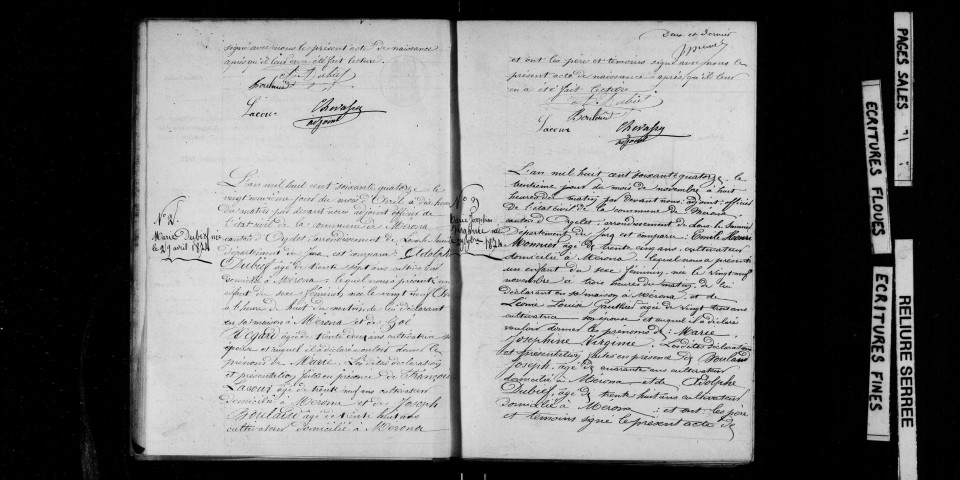 signé avec nous le présent acte de naissance
après qu'il leur en a été fait lecture.
A. Dubief
Boulaud
Lacour Chevassu
adjoint
N° 2.
Marie Dubief née
le 29 avril 1874
L'an mil huit cent soixante quatorze le
vingt neuvième jour du mois d'Avril à dix heures
du matin par devant nous adjoint officier de
l'état civil de la commune de Mérona
canton d'Orgelet arrondissement de Lons le Saunier
département du Jura est comparu Adolphe
Dubief âgé de trente sept ans cultivateur
domicilié à Mérona lequel nous a présenté un
enfant du sexe féminin née le vingt neuf
à l'heure de huit du matin de lui déclarant
en sa maison à Mérona et de
âgée de trente cinq ans cultivatrice son
épouse et auquel il a déclaré vouloir donner le
prénom de Marie. Les dites déclaration
et présentation faites en présence de François
Lacour âgé de trente neuf ans cultivateur
domicilié à Mérona et de Joseph
âgé de trente huit ans
cultivateur domicilié à Mérona
Deux et dernier
et ont les père et témoins signé avec nous le
présent acte de naissance après qu'il leur
en a été fait lecture
A. Dubief
Boulaud
Lacour Chevassu
adjoint
N° 3
Marie Josephine
Virginie née
1874.
L'an mil huit cent soixante quatorze le
trentième jour du mois de novembre à huit
heures du matin par devant nous adjoint officier
de l'état civil de la commune de Mérona
canton d'Orgelet arrondissement de Lons le Saunier
Département du Jura est comparu Emile
Monnier âgé de trente cinq ans cultivateur
domicilié à Mérona lequel nous a présenté
un enfant du sexe féminin née le vingt neuf
novembre à trois heures du matin de lui
déclarant en sa maison à Mérona et de
Léonie Louise Gauthier âgée de vingt trois ans
cultivatrice son épouse et auquel il a déclaré
vouloir donner les prénoms de Marie
Josephine Virginie. Les dites déclaration
et présentation faites en présence de Boulaud
Joseph âgé de quarante ans cultivateur
domicilié à Mérona et de Adolphe
Dubief âgé de trente huit ans cultivateur
domicilié à Mérona et ont les père
et témoins signé le présent acte de
PAGES SALES
ECRITURES FLOUES
ECRITURES FINES
RELIURE SERREE